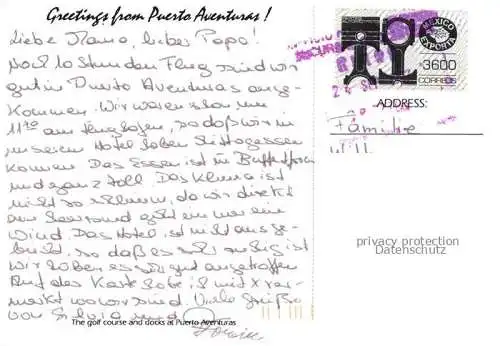 Greetings from Puerto Aventuras!
Liebe Mama, lieber Papa!
Nach 10 Stunden Flug sind wir
gut in Puerto Aventuras ange-
kommen. Wir waren schon um
11³⁰ am Flughafen, so daß wir in
unserem Hotel haben Mittagessen
können. Das Essen ist in Buffetform
und ganz toll. Das Klima ist
nicht so schlimm, da wir direkt
am Seestrand geht immer ein
Wind. Das Hotel ist nicht ausge-
bucht, so daß es sehr ruhig ist
Wir haben es sehr gut angetroffen
Auf der Karte habe ich mit X ver-
merkt wo wir sind. Viele Grüße
von Silvia und
The golf course and docks at Puerto Aventuras
MEXICO
EXPORTA
3600
CORREOS
ADDRESS:
Familie
privacy protection
Datenschutz